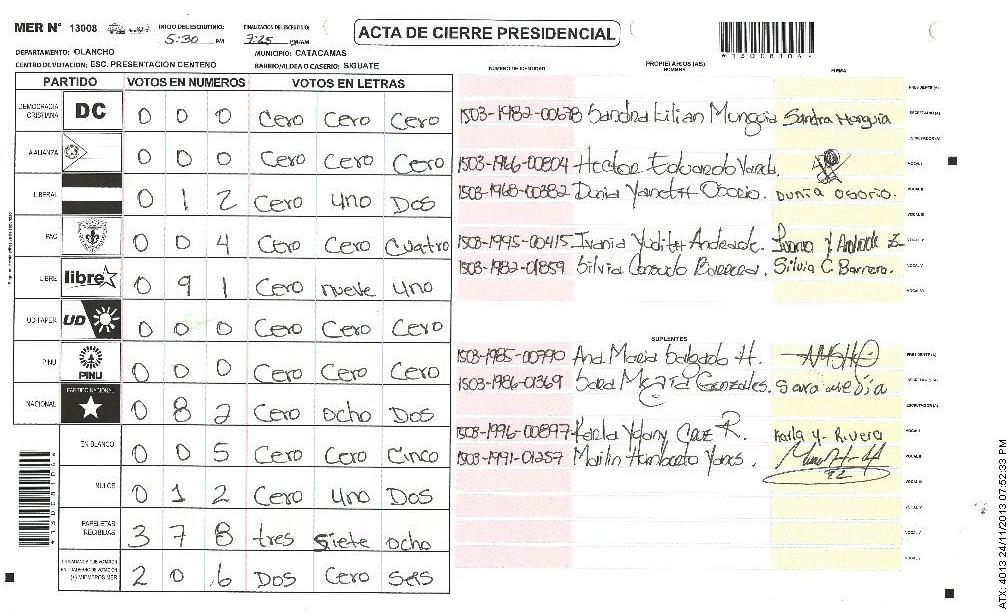 MER N° 13008 INICIO DEL ESCRUTINIO: 5:30 PM FINALIZACION DEL ESCRUTINIO: 7:25 PM/AM
ACTA DE CIERRE PRESIDENCIAL
DEPARTAMENTO: OLANCHO MUNICIPIO: CATACAMAS
CENTRO DE VOTACION: ESC. PRESENTACION CENTENO BARRIO/ALDEA O CASERIO: SIGUATE
PARTIDO VOTOS EN NUMEROS VOTOS EN LETRAS
NÚMERO DE IDENTIDAD PROPIETARIOS (AS) NOMBRE FIRMA
PRESIDENTE (A)
DEMOCRACIA CRISTIANA DC 0 0 0 Cero Cero Cero
1503-1982-00678 Sandra Lilian Munguia Sandra Munguia SECRETARIO (A)
ESCRUTADOR (A)
LA ALIANZA 0 0 0 Cero Cero Cero
1503-1966-00804 Hector Eduardo VOCAL I
LIBERAL 0 1 2 Cero uno Dos
1503-1968-00382 Dunia Yanett Osorio. Dunia Osorio. VOCAL II
VOCAL III
PAC 0 0 4 Cero Cero Cuatro
1503-1995-00415 Ivania Yuditt Andrade. Ivania Y Andrade Z VOCAL IV
LIBRE libre 0 9 1 Cero nueve uno
1503-1982-01859 Silvia Consuelo Barrera. Silvia C. Barrera. VOCAL V
VOCAL VI
UD FAPER UD 0 0 0 Cero Cero Cero
SUPLENTES
PINU PINU 0 0 0 Cero Cero Cero
1503-1985-00790 Ana Maria Salgado H. PRESIDENTE (A)
NACIONAL PARTIDO NACIONAL 0 8 2 Cero ocho Dos
1503-1986-01369 Sara Mejia Gonzales. Sara mejia SECRETARIO (A)
ESCRUTADOR (A)
EN BLANCO 0 0 5 Cero Cero Cinco
1503-1996-00897 Karla Ydany Cruz R. Karla Y. Rivera VOCAL I
1503-1991-01257 Marlin Humberto VOCAL II
NULOS 0 1 2 Cero uno Dos
VOCAL III
VOCAL IV
PAPELETAS RECIBIDAS 3 7 8 tres siete ocho
VOCAL V
CIUDADANOS QUE VOTARON EN CUADERNO DE VOTACION (+) MIEMBROS MER 2 0 6 Dos Cero seis
ATX: 4013 24/11/2013 07:52:33 PM